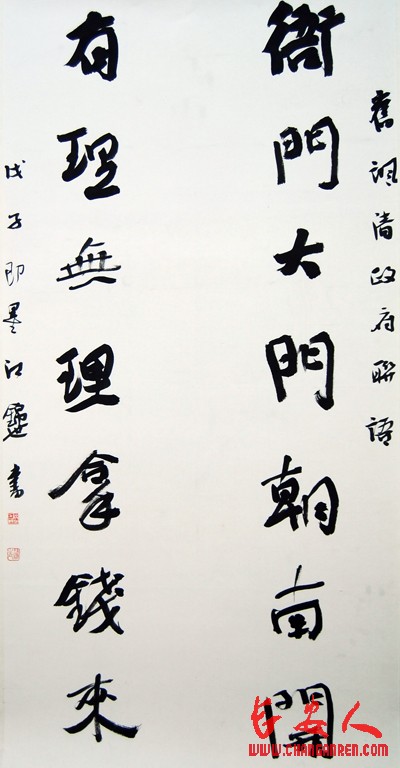 舊諷清政府聯語
衙門大門朝南開
有理無理拿錢來
戊子即墨江書
长安人
WWW.CHANGANREN.COM